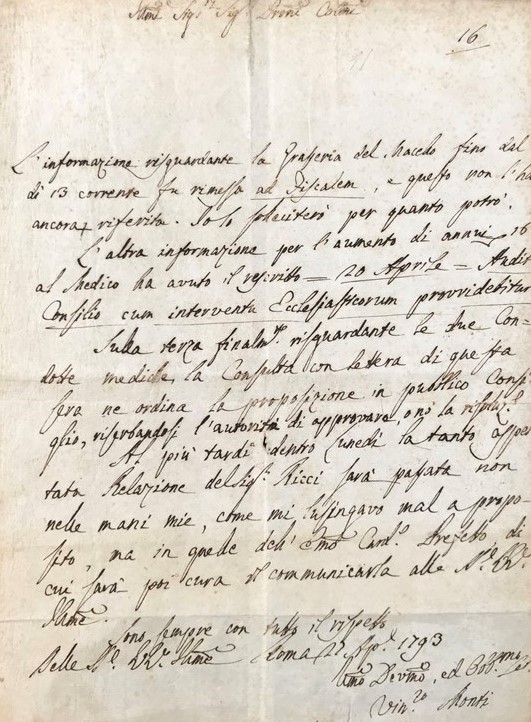 Illmi Sigri Sigri Proni Colmi
16
L'informazione risguardante la Grasceria del Macello fino dal
dì 13 corrente fu rimessa ad Fiscalem, e questo non l'ha
ancora riferita. Io lo solleciterò per quanto potrò.
L'altra informazione per l'aumento di annui 16
al Medico ha avuto il rescritto = 20 Aprile = Audito
Consilio cum interventu Ecclesiasticorum providebitur
Sulla terza finalmte risguardante le due Con=
dotte mediche, la Consulta con lettera di questa
sera ne ordina la proposizione in pubblico Consi
glio, riserbandosi l'autorità di approvare, o nò la risoluze
Al più tardi dentro lunedì la tanto aspet
tata Relazione del Sigr Ricci sarà passata non
nelle mani mie, come mi lusingavo mal a propo
sito, ma in quelle dell' Emo Cardl Prefetto, di
cui sarà poi cura il communicarla alle
Illme.
Sono sempre con tutto il rispetto
Delle Illme Roma 27 Aple 1793
Umo Devmo, ed Obbmo
Vinzo Monti